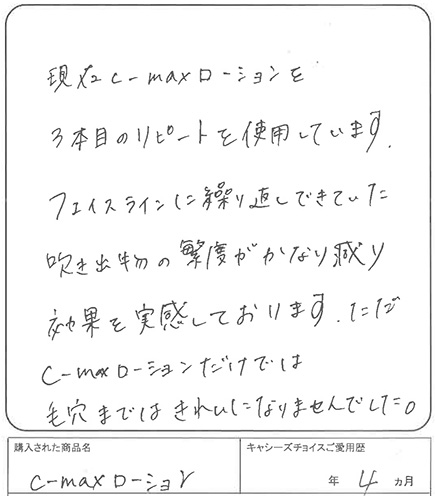 現在c-maxローションを
3本目のリピートを使用しています.
フェイスラインに繰り返しできていた
吹き出物の繁度がかなり減り
効果を実感しております.ただ
C-maxローションだけでは
毛穴まではきれいになりませんでした。
購入された商品名
キャシーズチョイスご愛用歴
c-maxローション
年 4 ヵ月